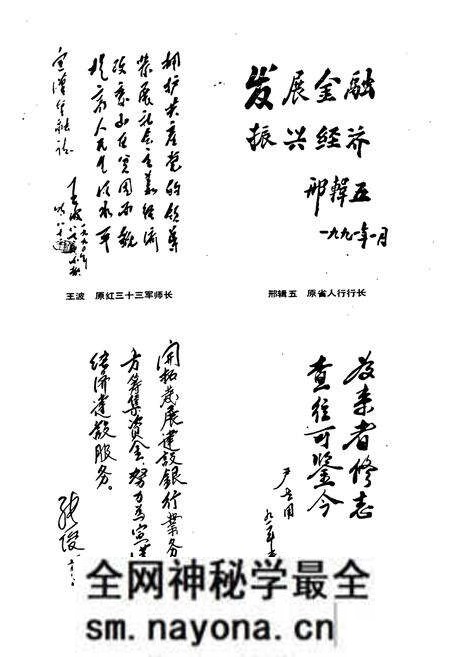 拥护共产党的领导
发展社会主义经济
改变山区贫困面貌
提高人民生活水平
王波
发展金融
振兴经济
邢辑五
一九九一年一月
王波 原红三十三军师长
邢辑五 原省人行行长
開拓发展建設銀行業务
方筹集資金、努力为宣
经济建設服务。
张俊
为来者修志
查往可鉴今
全网神秘学最全
sm.nayona.cn